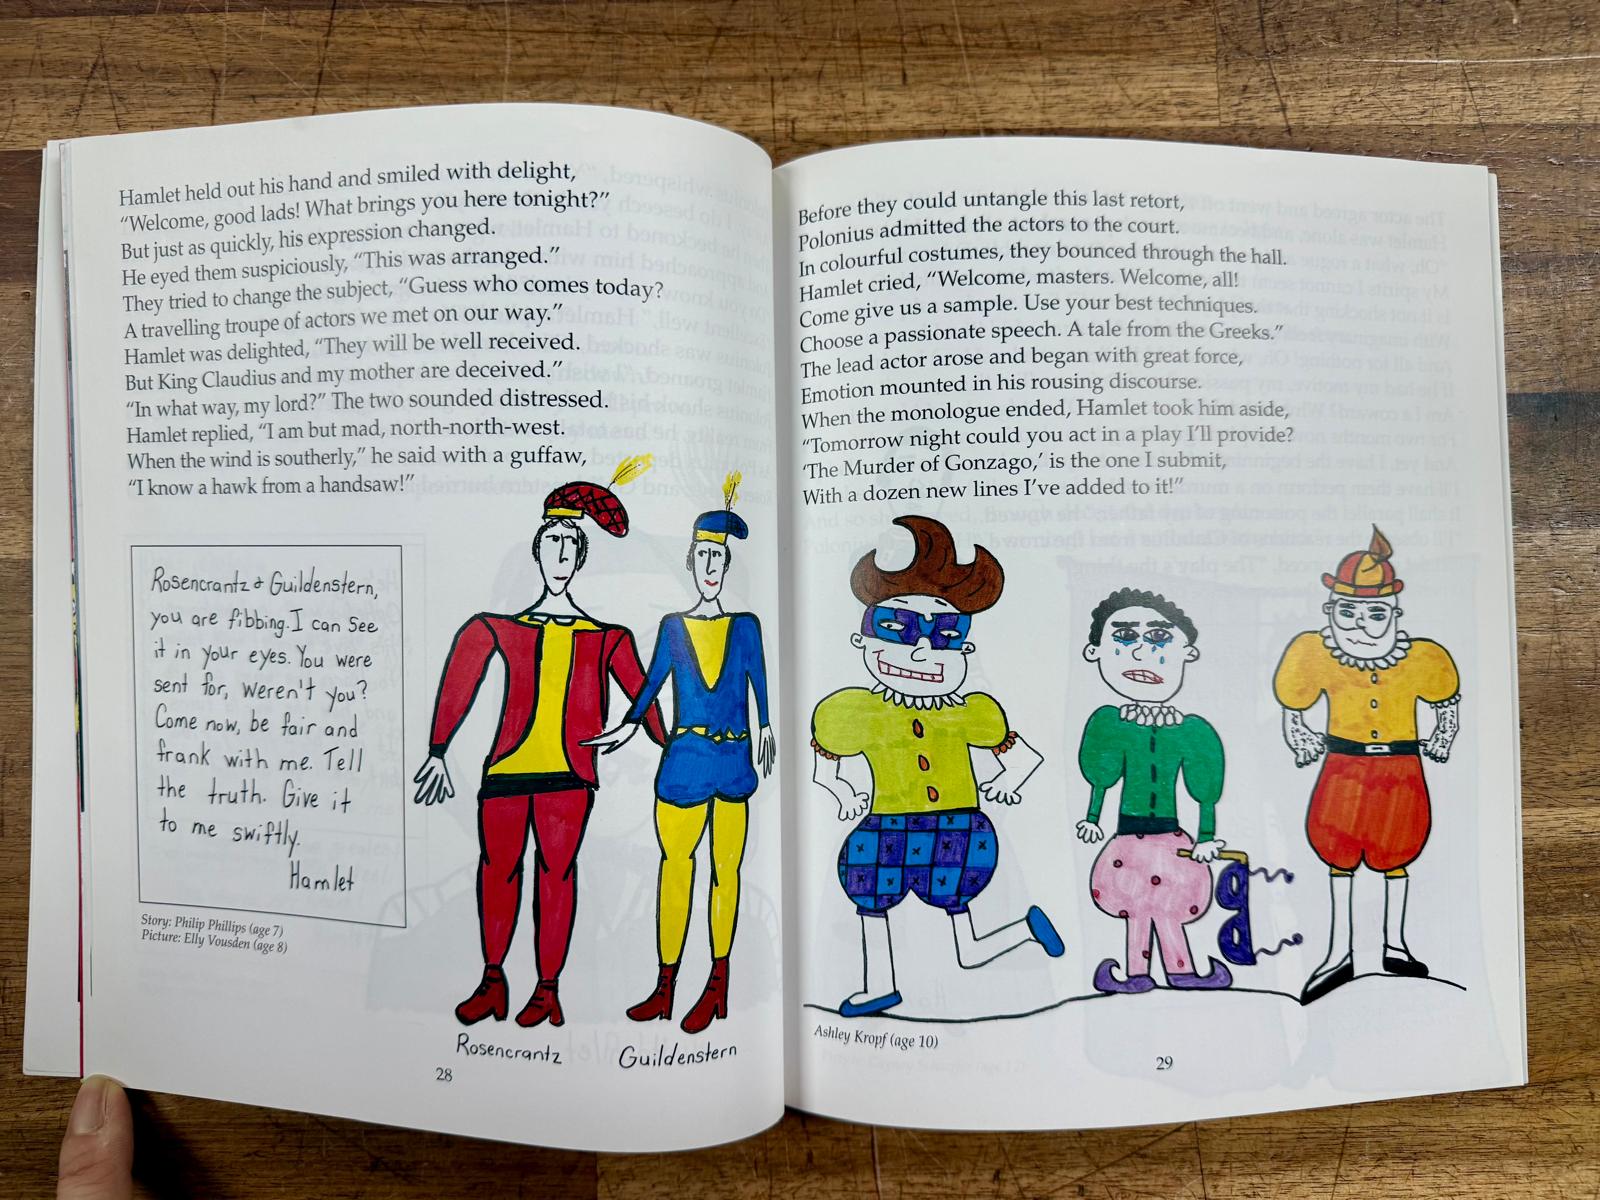 Hamlet held out his hand and smiled with delight,
“Welcome, good lads! What brings you here tonight?”
But just as quickly, his expression changed.
He eyed them suspiciously, “This was arranged.”
They tried to change the subject, “Guess who comes today?
A travelling troupe of actors we met on our way.”
Hamlet was delighted, “They will be well received.
But King Claudius and my mother are deceived.”
“In what way, my lord?” The two sounded distressed.
Hamlet replied, “I am but mad, north-north-west.
When the wind is southerly,” he said with a guffaw,
“I know a hawk from a handsaw!”
Rosencrantz & Guildenstern,
you are fibbing. I can see
it in your eyes. You were
sent for, weren't you?
Come now, be fair and
frank with me. Tell
the truth. Give it
to me swiftly.
Hamlet
Story: Philip Phillips (age 7)
Picture: Elly Vousden (age 8)
Rosencrantz
Guildenstern
28
Before they could untangle this last retort,
Polonius admitted the actors to the court.
In colourful costumes, they bounced through the hall.
Hamlet cried, “Welcome, masters. Welcome, all!
Come give us a sample. Use your best techniques.
Choose a passionate speech. A tale from the Greeks.”
The lead actor arose and began with great force,
Emotion mounted in his rousing discourse.
When the monologue ended, Hamlet took him aside,
“Tomorrow night could you act in a play I'll provide?
‘The Murder of Gonzago,’ is the one I submit,
With a dozen new lines I've added to it!”
Ashley Kropf (age 10)
29